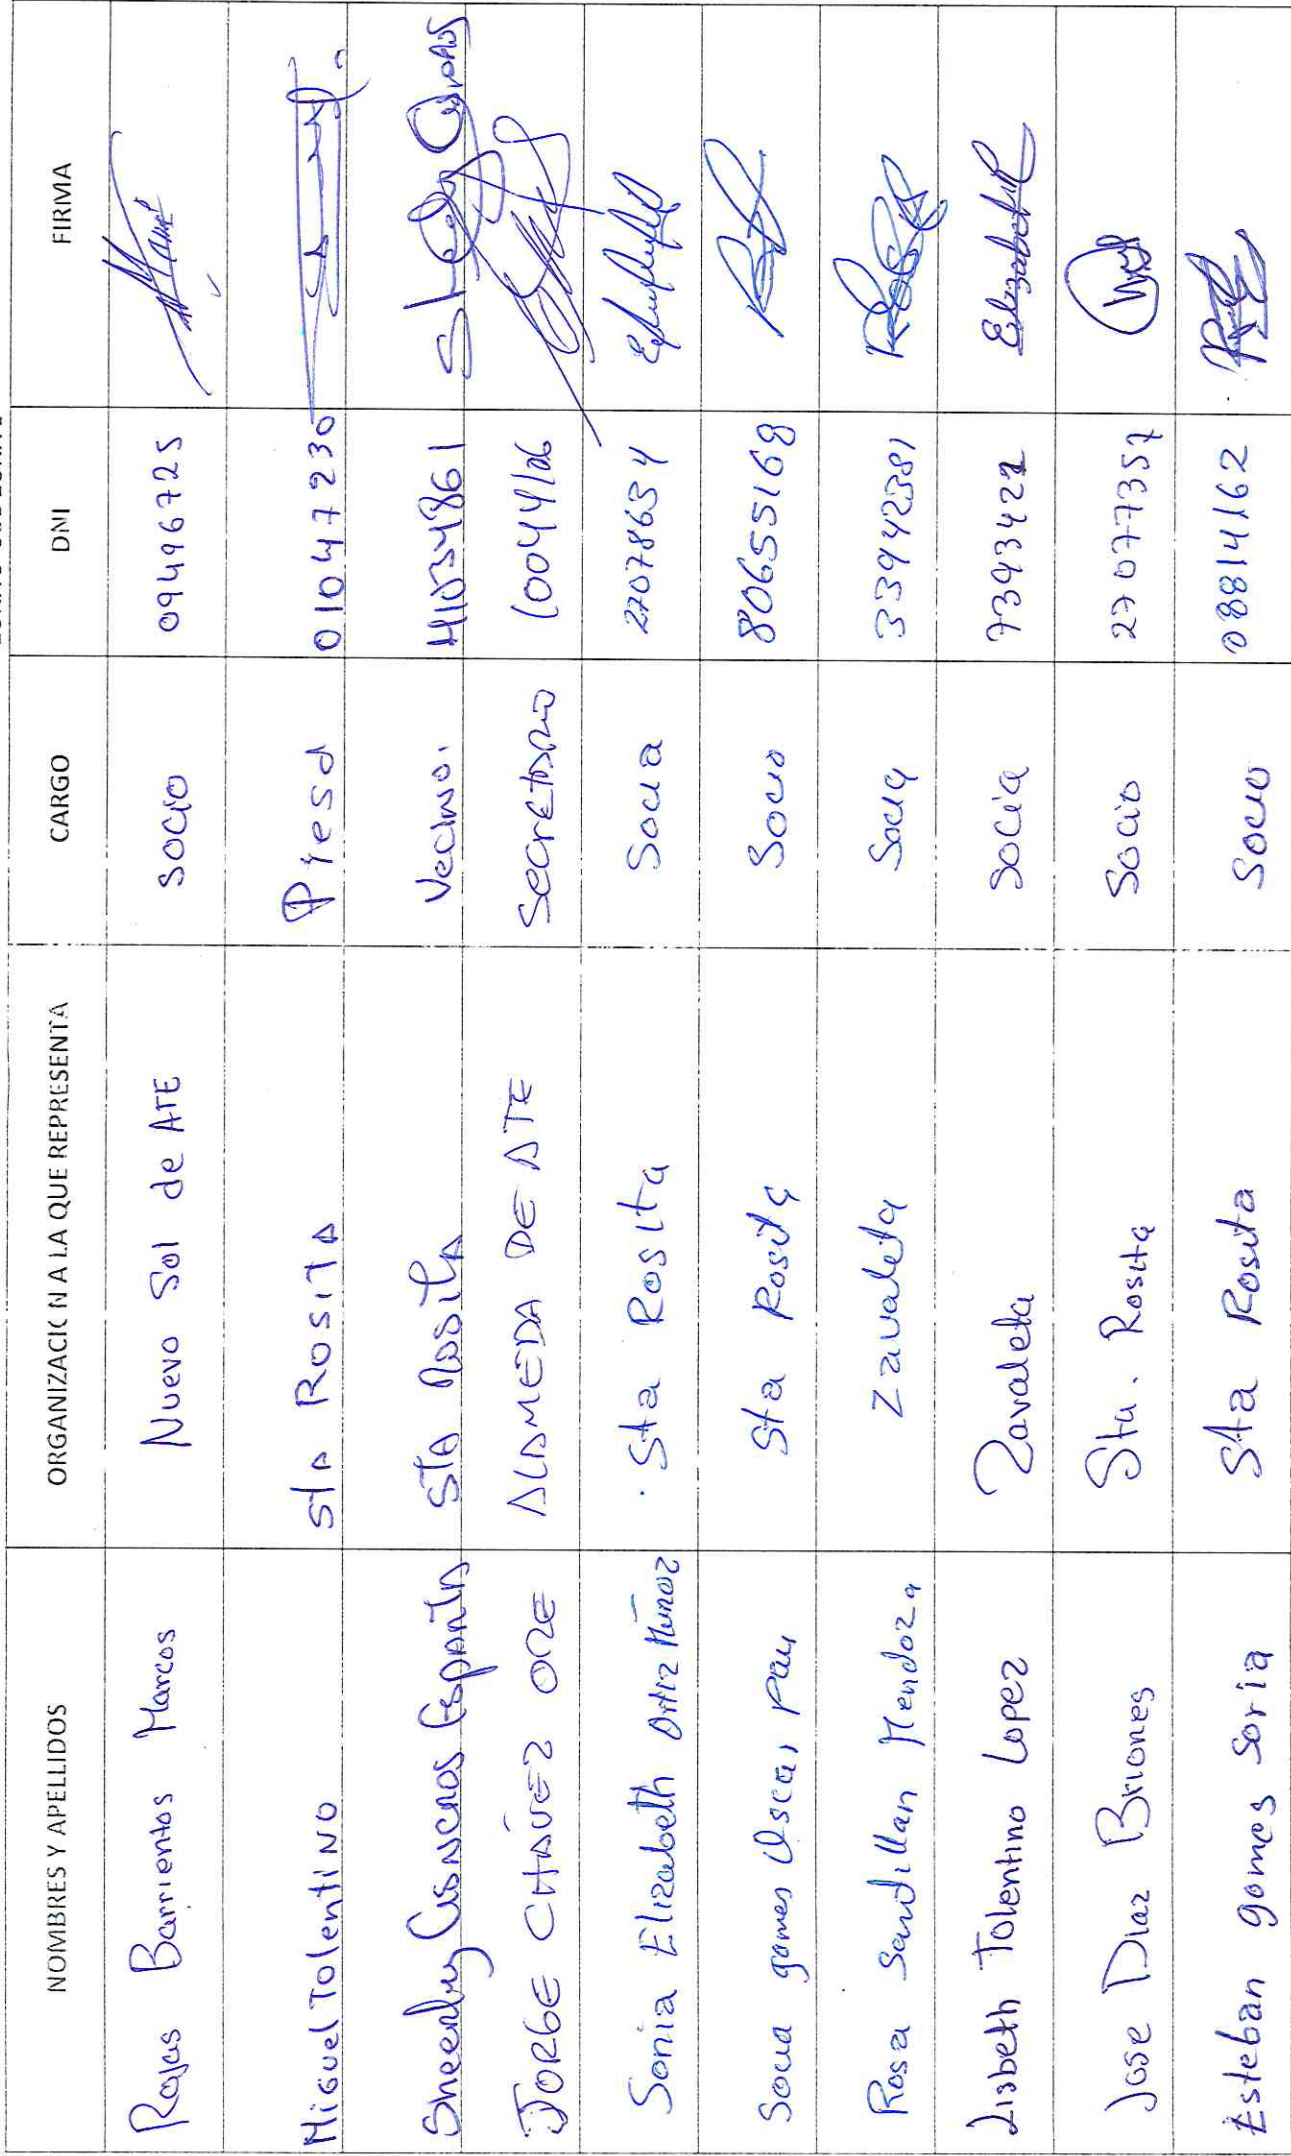 NOMBRES Y APELLIDOS ORGANIZACIÓN A LA QUE REPRESENTA CARGO DNI FIRMA
Rojas Barrientos Marcos Nuevo Sol de ATE SOCIO 09496725
Miguel Tolentino sta Rosita Presd 01047230
Sheerley Cisneros Sta Rosita Vecino. 41034861 Sheerley Cisneros
JORGE CHÁVEZ ORE ALAMEDA DE ATE Secretario
Sonia Elizabeth Ortiz Muñoz Sta Rosita Socia 22078634
gomes Oscar Sta Rosita Socio 80655168
Rosa Santillan Mendoza Zavaleta Socia 33942381
Lisbeth Tolentino Lopez Zavaleta Socia Elizabeth
Jose Diaz Briones Sta. Rosita Socio 27077357
Esteban gomes Soria Sta Rosita Socio 08814162